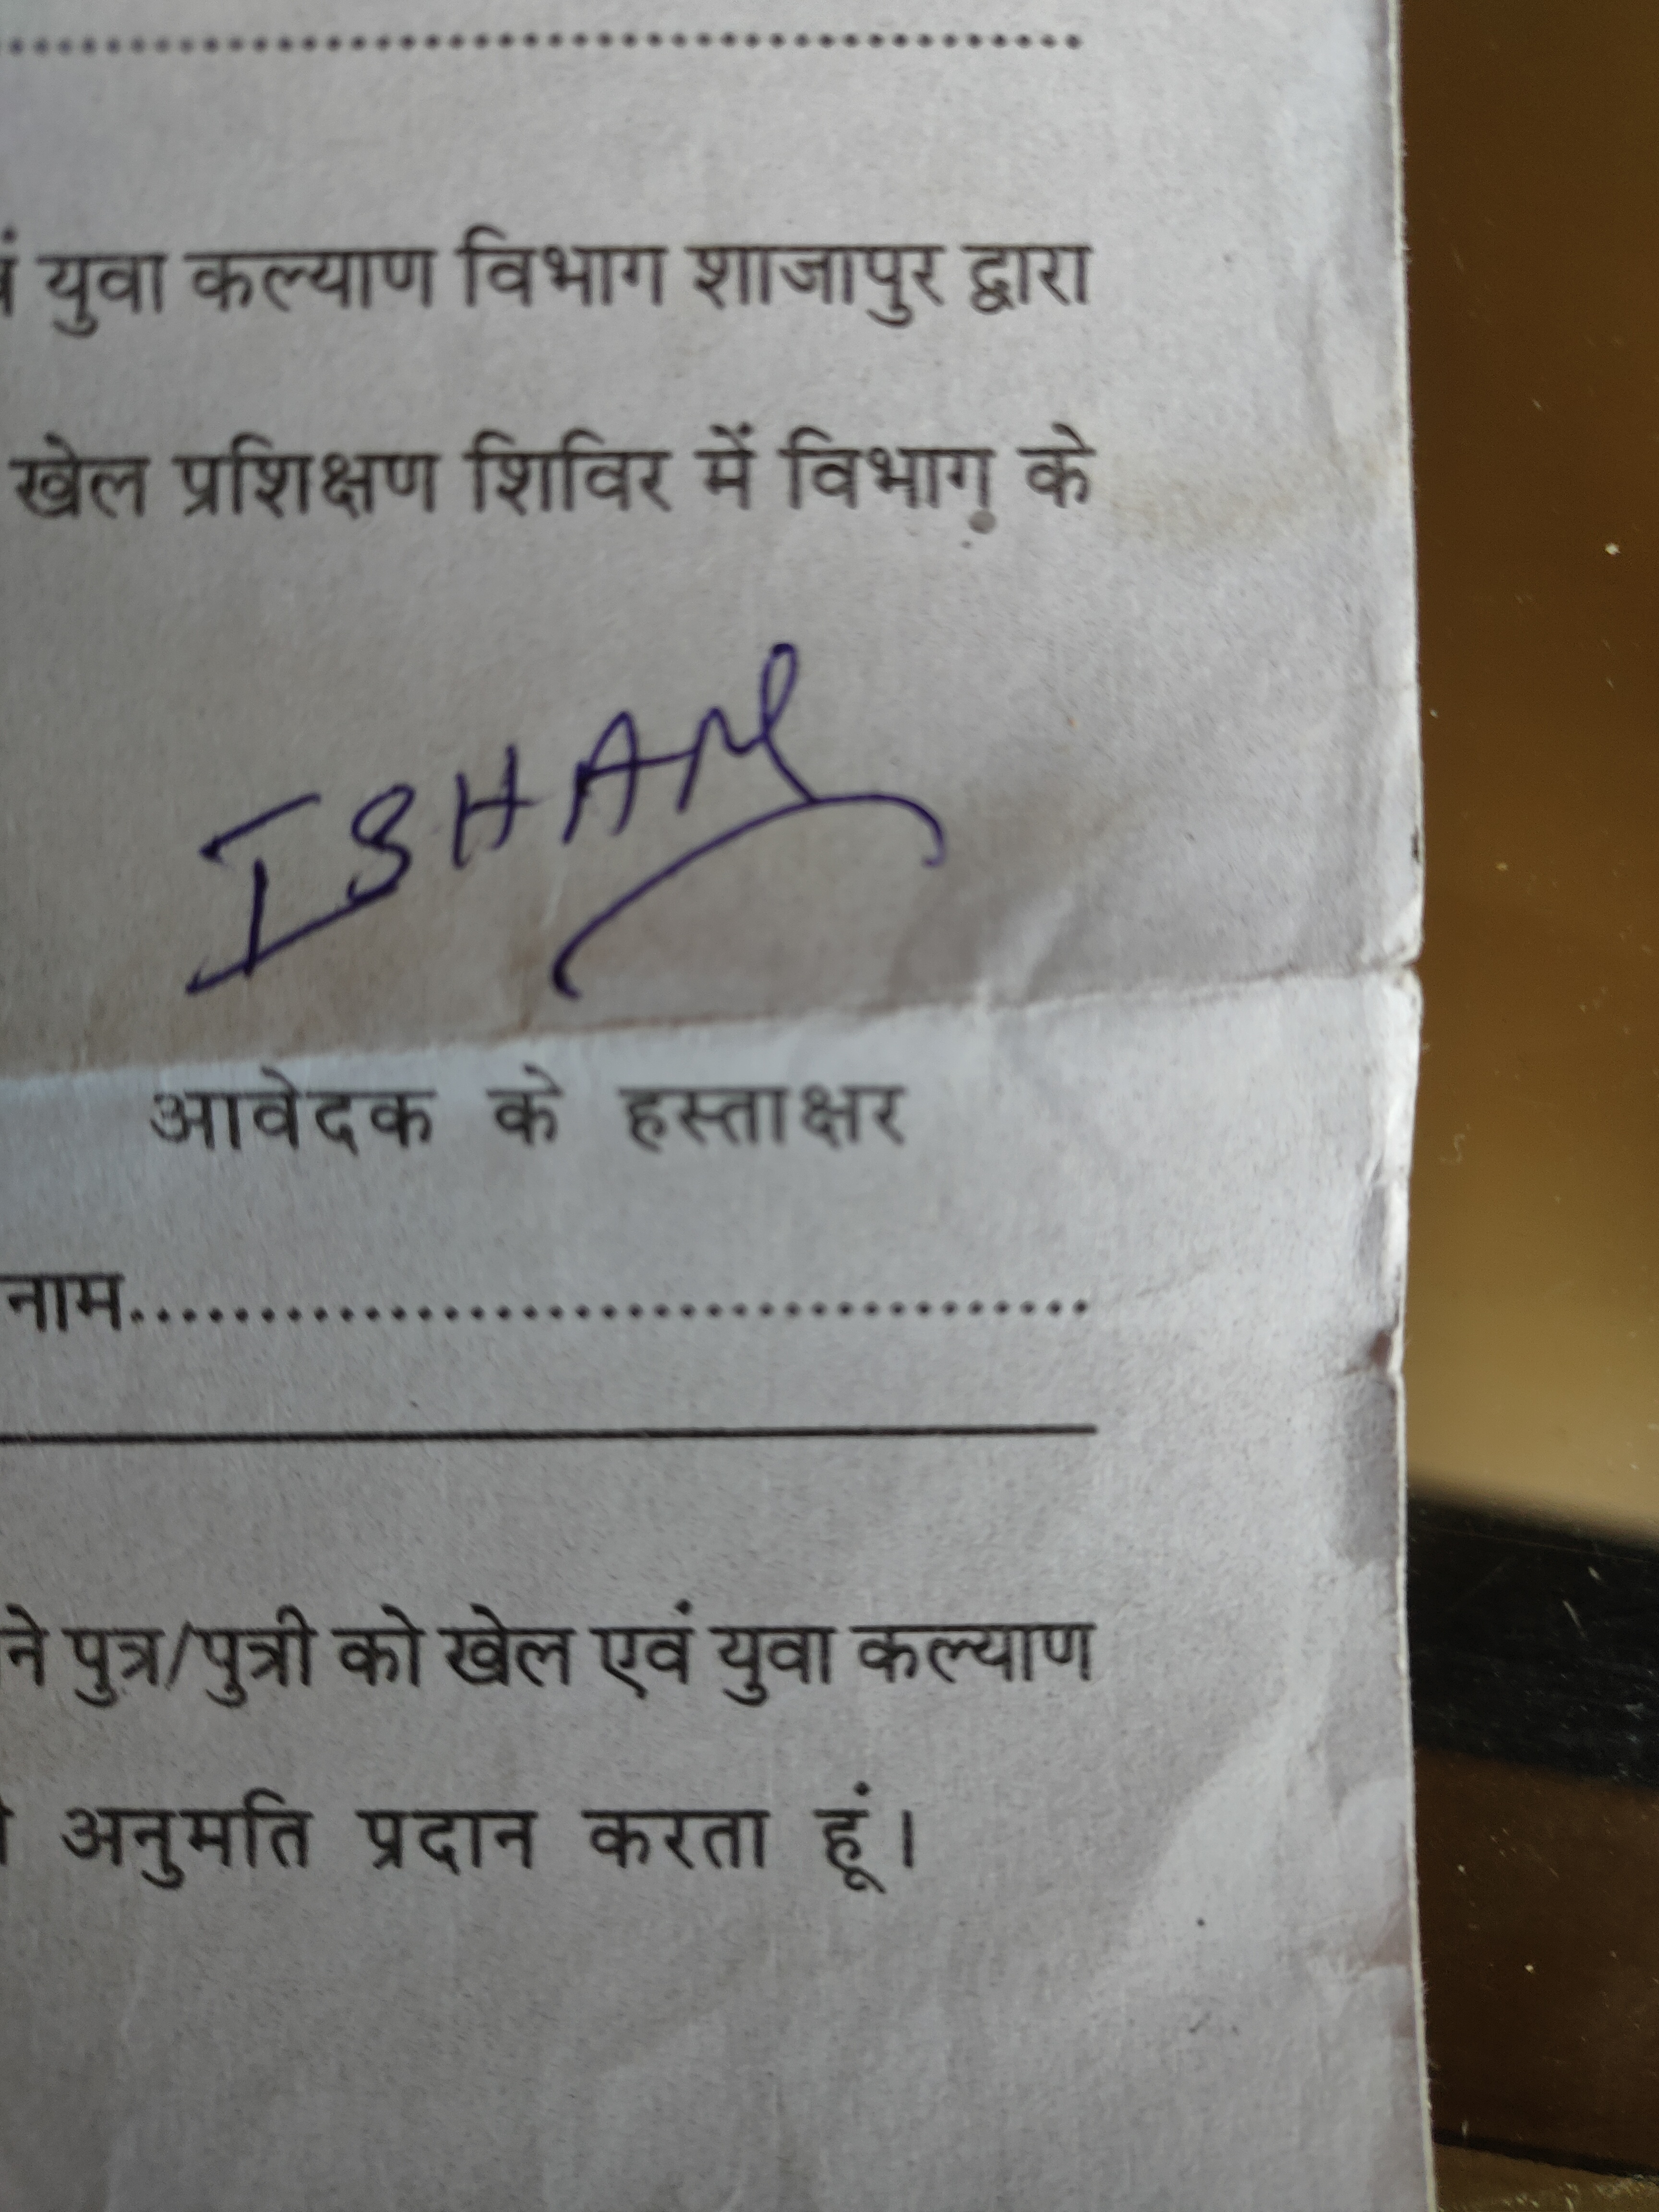 ....................................................
युवा कल्याण विभाग शाजापुर द्वारा
खेल प्रशिक्षण शिविर में विभाग के
ISHAN
आवेदक के हस्ताक्षर
नाम......................................
ने पुत्र/पुत्री को खेल एवं युवा कल्याण
अनुमति प्रदान करता हूं।